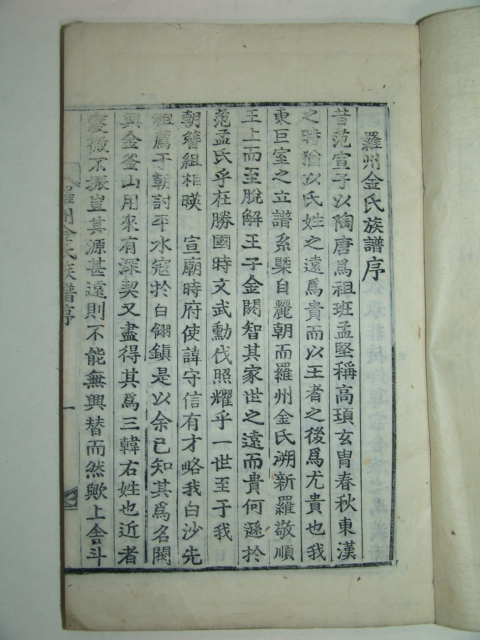 羅州金氏族譜序
昔范宣子以陶唐爲祖班孟堅稱高頊玄胄春秋東漢
之時猶以氏姓之遠爲貴而以王者之後爲尤貴也我
東巨室之立譜系槩自麗朝而羅州金氏溯新羅敬順
王上而至脫解王子金閼智其家世之遠而貴何遜於
范孟氏乎在勝國時文武勳伐照耀乎一世至于我
朝簪組相暎 宣廟時府使諱守信有才略我白沙先
祖薦于朝討平水寇於白翎鎭是以余已知其爲名閥
與金釜山用來有深契又盡得其爲三韓右姓也近者
寖微不振豈其源甚遠則不能無興替而然歟上舍斗
羅州金氏族譜序
一